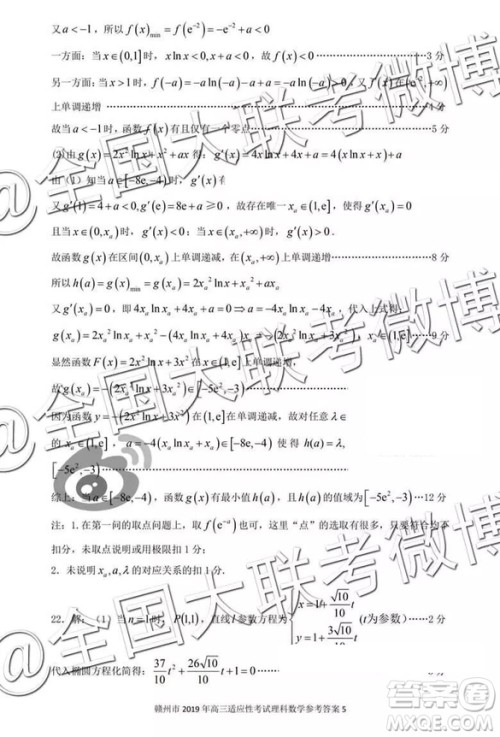 又a<-1，所以f(x)min=f(e⁻²)=-2e⁻²-a>0
一方面：当x∈(0,1]时，x ln x<0, x+a<0，故f(x)<0 ……3分
另一方面：当x>1时，f(-a)=-a ln(-a)-a+a=-a ln(-a)>0，又f(x)在
上单调递增 ……4分
故当a<-1时，函数f(x)有且仅有一个零点 ……5分
(2)由g(x)=2x²ln x+x²+ax得：g'(x)=4x ln x+4x+a=4
由（1）知当a∈[-8e,-4)时，g'(x)有
又g'(1)=4+a<0, g'(e)=8e+a≥0，故存在唯一xₐ∈(1,e]，使得g'(xₐ)=0
且当x∈(0,xₐ)时，g'(x)<0；当x∈(xₐ,+∞)时，g'(x)>0
故函数g(x)在区间(0,xₐ)上单调递减，在(xₐ,+∞)上单调递增
所以h(a)=g(x)min=g(xₐ)=2xₐ²ln xₐ+xₐ²+axₐ
又g'(xₐ)=0，即4xₐln xₐ+4xₐ+a=0⇒a=-4xₐln xₐ-4xₐ，代入上式得：
g(xₐ)=2xₐ²ln xₐ+xₐ²-(4xₐln xₐ+4xₐ)xₐ=-(2xₐ²ln xₐ+3xₐ²)，xₐ∈(1,e] ……9分
显然函数F(x)=2x²ln x+3x²在(1,e]上单调递增
故g(xₐ)=-(2xₐ²ln xₐ+3xₐ²)∈[-5e²,-3)
因为函数y=-(2x²ln x+3x²)在(1,e]上单调递减，故对任意λ∈
的xₐ∈(1,e]，a=-4(xₐln xₐ+xₐ)∈[-8e,-4)使得h(a)=λ，
[-5e²,-3)
综上：当a∈[-8e,-4)，函数g(x)有最小值h(a)，且h(a)的值域为[-5e²,-3) …12分
注：1.在第一问的取点问题上，取f(e⁻ᵃ)也可以，这里“点”的说明不唯一，只要符合均不
扣分，未取点说明或用图易扣1分.
2．未说明xₐ,a,λ的对应关系的扣1分.
22.解：（1）当n=1时，P(1,1)，直线l参数方程为{x=1+√10/10 t, y=1+3√10/10 t (t为参数) ……2分
代入椭圆方程化简得：37/10 t²+26√10/10 t+1=0
赣州市2019年高三适应性考试理科数学参考答案5
@全国大联考微博
@全国大联考微博
答案圈